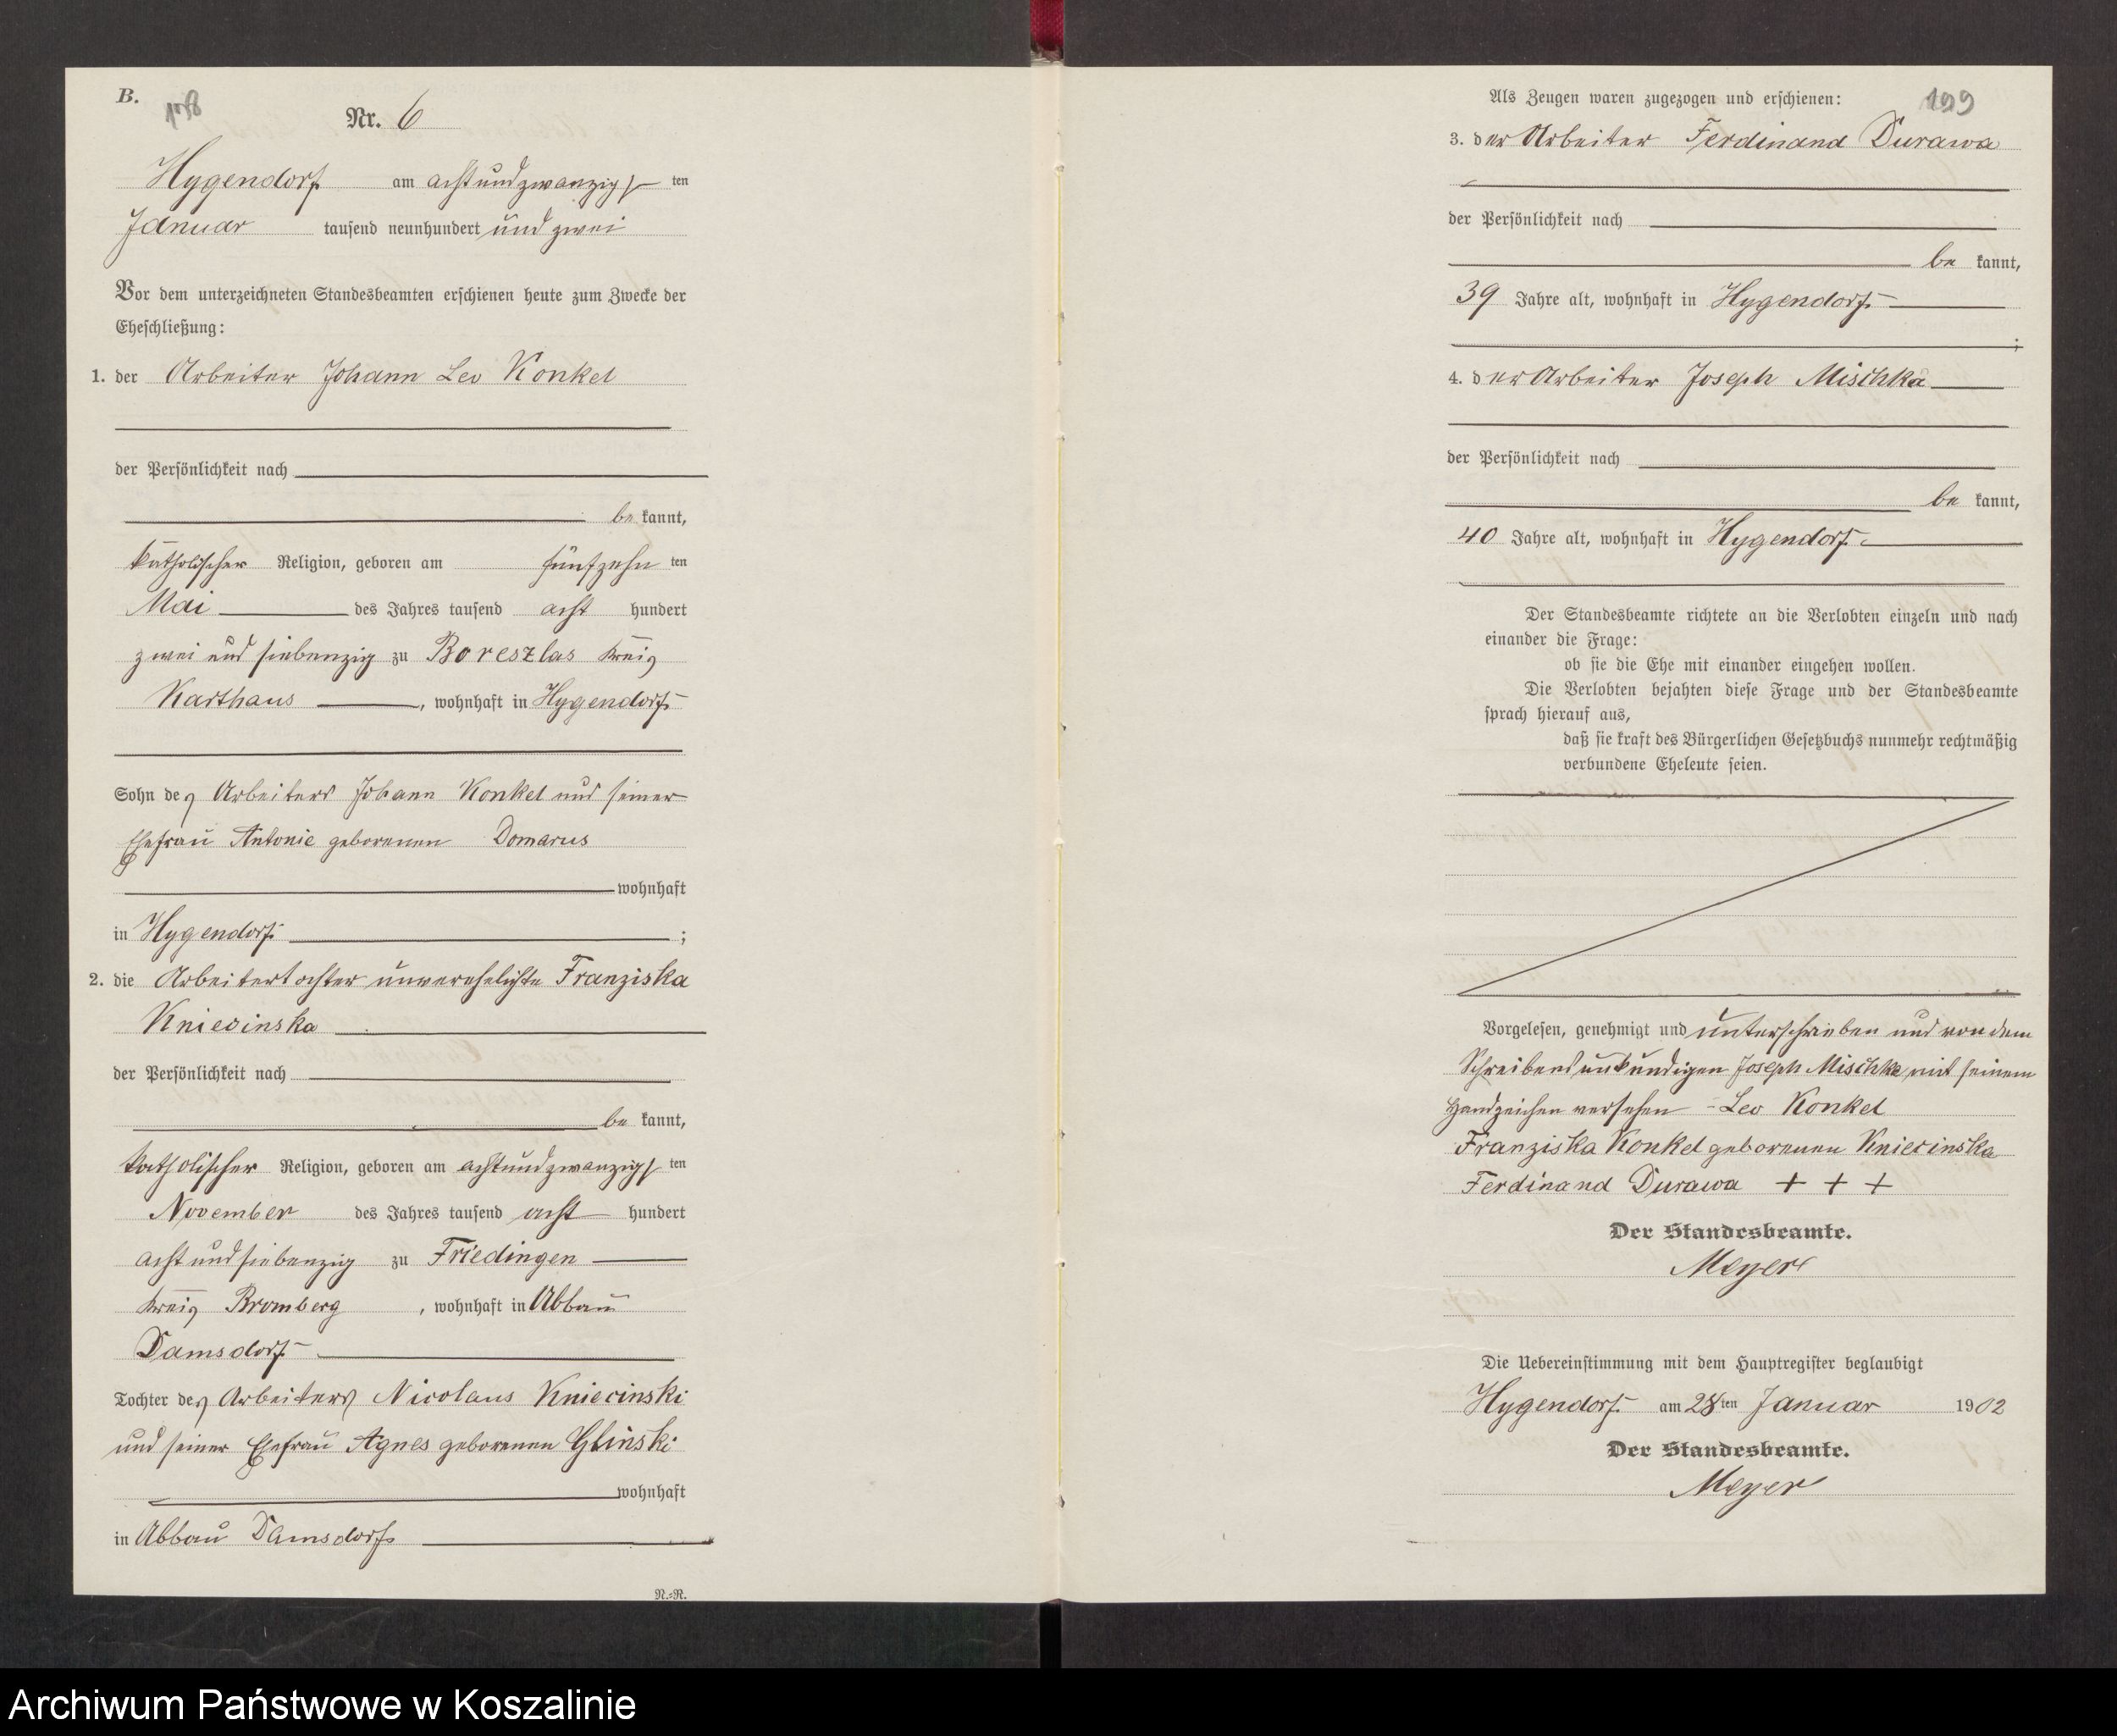 B.
Nr. 6
Hygendorf am achtundzwanzigsten
Januar tausend neunhundert und zwei
Vor dem unterzeichneten Standesbeamten erschienen heute zum Zwecke der
Eheschließung:
1. der Arbeiter Johann Leo Konkel
der Persönlichkeit nach
be kannt,
katholischer Religion, geboren am fünfzehn ten
Mai des Jahres tausend acht hundert
zwei und siebenzig zu Boreszlas Kreis
Karthaus, wohnhaft in Hygendorf
Sohn des Arbeiters Johann Konkel und seiner
Ehefrau Antonie geborenen Domarus
wohnhaft
in Hygendorf ;
2. die Arbeitertochter unverehelichte Franziska
Kniecinska
der Persönlichkeit nach
be kannt,
katholischer Religion, geboren am achtundzwanzigsten
November des Jahres tausend acht hundert
acht und siebenzig zu Friedingen
Kreis Bromberg, wohnhaft in Abbau
Damsdorf
Tochter des Arbeiters Nicolaus Kniecinski
und seiner Ehefrau Agnes geborenen Glinski
wohnhaft
in Abbau Damsdorf
N.=R.
199
Als Zeugen waren zugezogen und erschienen:
3. der Arbeiter Ferdinand Durawa
der Persönlichkeit nach
be kannt,
39 Jahre alt, wohnhaft in Hygendorf
;
4. der Arbeiter Joseph Mischka
der Persönlichkeit nach
be kannt,
40 Jahre alt, wohnhaft in Hygendorf.
Der Standesbeamte richtete an die Verlobten einzeln und nach
einander die Frage:
ob sie die Ehe mit einander eingehen wollen.
Die Verlobten bejahten diese Frage und der Standesbeamte
sprach hierauf aus,
daß sie kraft des Bürgerlichen Gesetzbuchs nunmehr rechtmäßig
verbundene Eheleute seien.
Vorgelesen, genehmigt und unterschrieben und von dem
Schreibensunkundigen Joseph Mischka mit seinem
Handzeichen versehen - Leo Konkel
Franziska Konkel geborenen Kniecinska
Ferdinand Durawa + + +
Der Standesbeamte.
Meyer
Die Uebereinstimmung mit dem Hauptregister beglaubigt
Hygendorf am 28ten Januar 1902
Der Standesbeamte.
Meyer
Archiwum Państwowe w Koszalinie